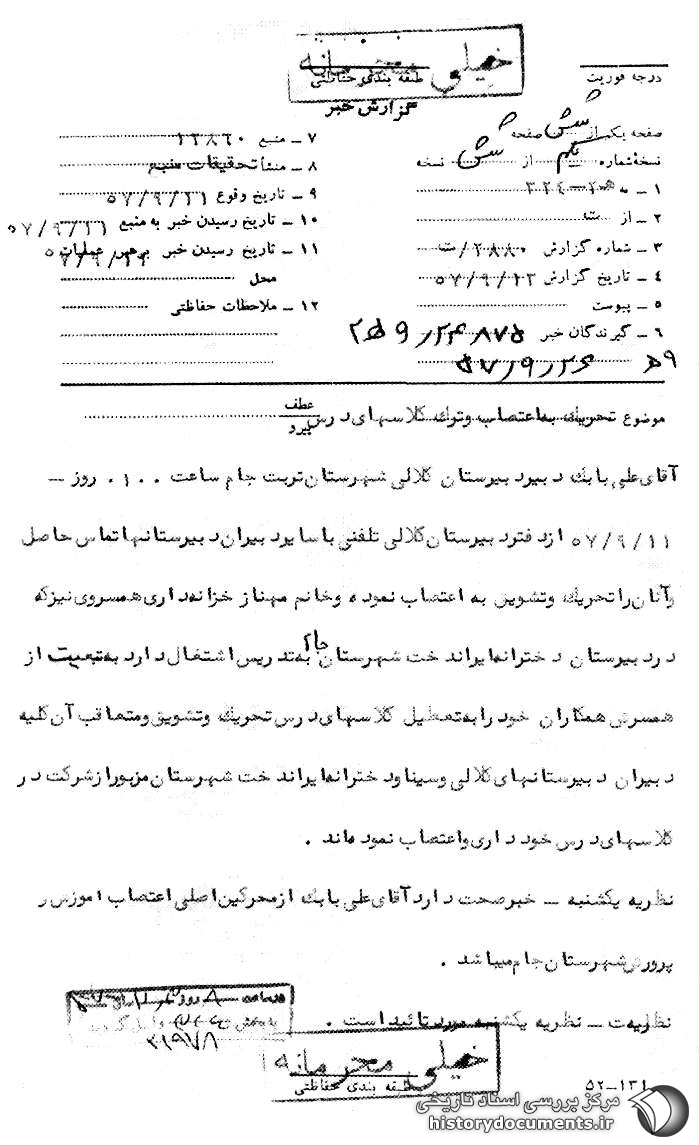 خیلی محرمانه
طبقه بندی حفاظتی
درجه فوریت
گزارش خبر
صفحه یکم از شش صفحه
نسخهٔ شماره یکم از شش نسخه
۱ ـ به
۲ ـ از
۳ ـ شماره گزارش ۲۸۸۰/ت
۴ ـ تاریخ گزارش ۵۷/۹/۱۳
۵ ـ پیوست
۶ ـ گیرندگان خبر
۷ ـ منبع ۱۳۸۶۰
۸ ـ منشأ تحقیقات منبع
۹ ـ تاریخ وقوع ۵۷/۹/۱۱
۱۰ ـ تاریخ رسیدن خبر به منبع ۵۷/۹/۱۱
۱۱ ـ تاریخ رسیدن خبر برهبر عملیات
محل
۱۲ ـ ملاحظات حفاظتی
موضوع تحریک به اعتصاب وترک کلاسهای درس
عطف
پیرو
آقای علی بابک دبیر دبیرستان کلالی شهرستان تربت جام ساعت ۱۰۰۰ روز ـ
۵۷/۹/۱۱ از دفتر دبیرستان کلالی تلفنی با سایر دبیران دبیرستانها تماس حاصل
وآنان را تحریک وتشویق به اعتصاب نموده وخانم مهناز خزانه‌داری همسر وی نیز که
در دبیرستان دخترانه ایراندخت شهرستان جام به تدریس اشتغال دارد به تبعیت از
همسرش همکاران خود را به تعطیل کلاسهای درس تحریک وتشویق ومتعاقب آن کلیه
دبیران دبیرستانهای کلالی وسینا ودخترانه ایراندخت شهرستان مزبور از شرکت در
کلاسهای درس خودداری واعتصاب نموده‌اند .
نظریه یکشنبه ـ خبر صحت دارد آقای علی بابک از محرکین اصلی اعتصاب آموزش و
پرورش شهرستان جام میباشد .
نظریه ت ـ نظریه یکشنبه مورد تائید است .
خیلی محرمانه
طبقه بندی حفاظتی
۵۲ـ۱۳۱
مرکز بررسی اسناد تاریخی
historydocuments.ir